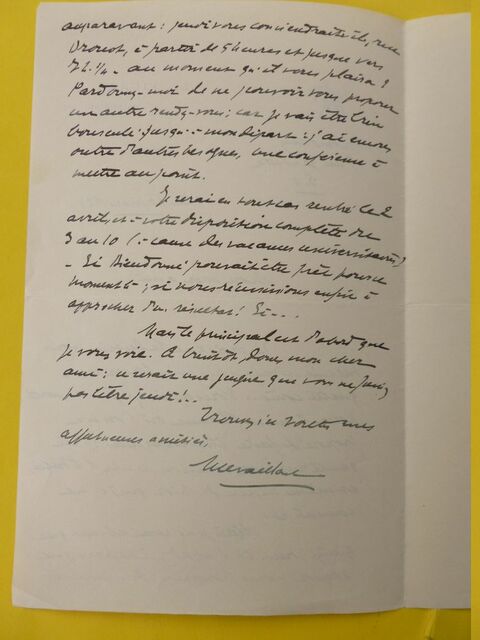 auparavant : jeudi vous conviendrait-il, rue
Drouot, à partir de 5 heures et jusque vers
7 h. ¼ - au moment qu'il vous plaira ?
Pardonnez-moi de ne pouvoir vous proposer
un autre rendez-vous ; car je vais être bien
bousculé jusqu'à mon départ : j'ai encore
outre d'autres besognes, une conférence à
mettre au point.
Je serai en tout cas rentré le 2
avril, et à votre disposition complète du
3 au 10 (à cause des vacances universitaires)
- Si Dieudonné pouvait être prêt pour ce
moment-là ; si nous réussissions enfin à
approcher d'un résultat ! Si - - -
Mais le principal est d'abord que
je vous voie. A bientôt donc, mon cher
ami : ce serait une que vous ne
pas libre jeudi ! . .
Trouvez ici toutes mes
affectueuses amitiés,